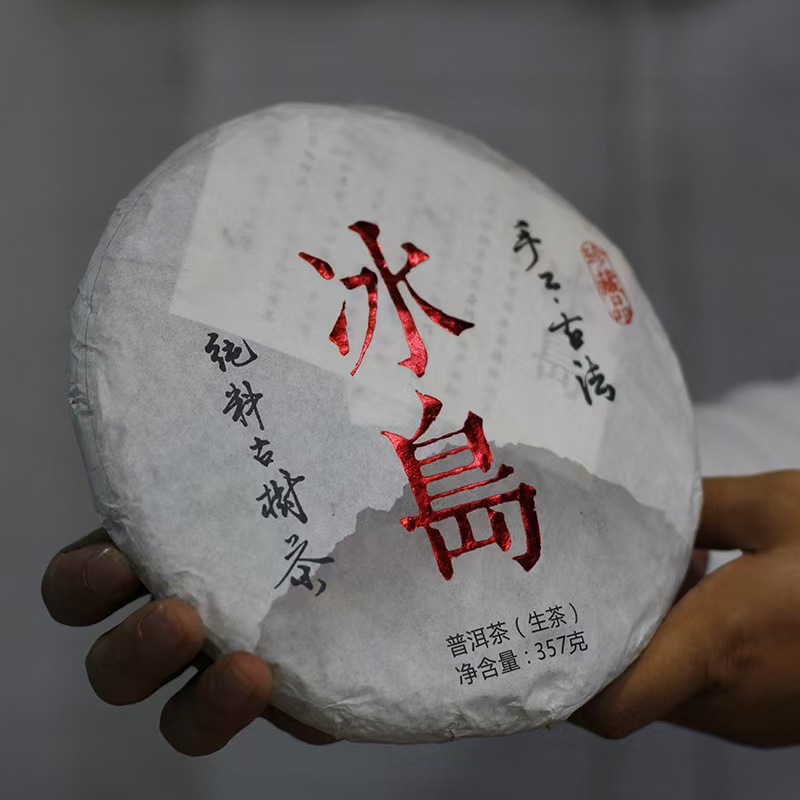 冰島
手工·古法
珍藏品
纯料古樹茶
普洱茶（生茶）
净含量：357克